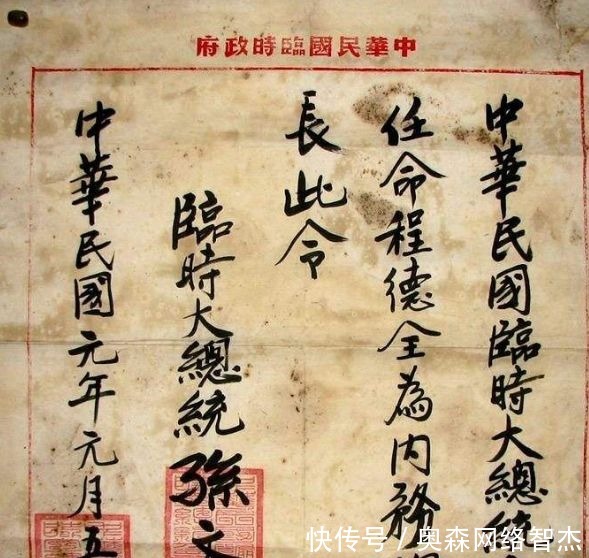 中華民國臨時政府
中華民國臨時大總統
任命程德全為內務
長此令
臨時大總統孫文
中華民國元年元月五
快传号/奥森网络智杰